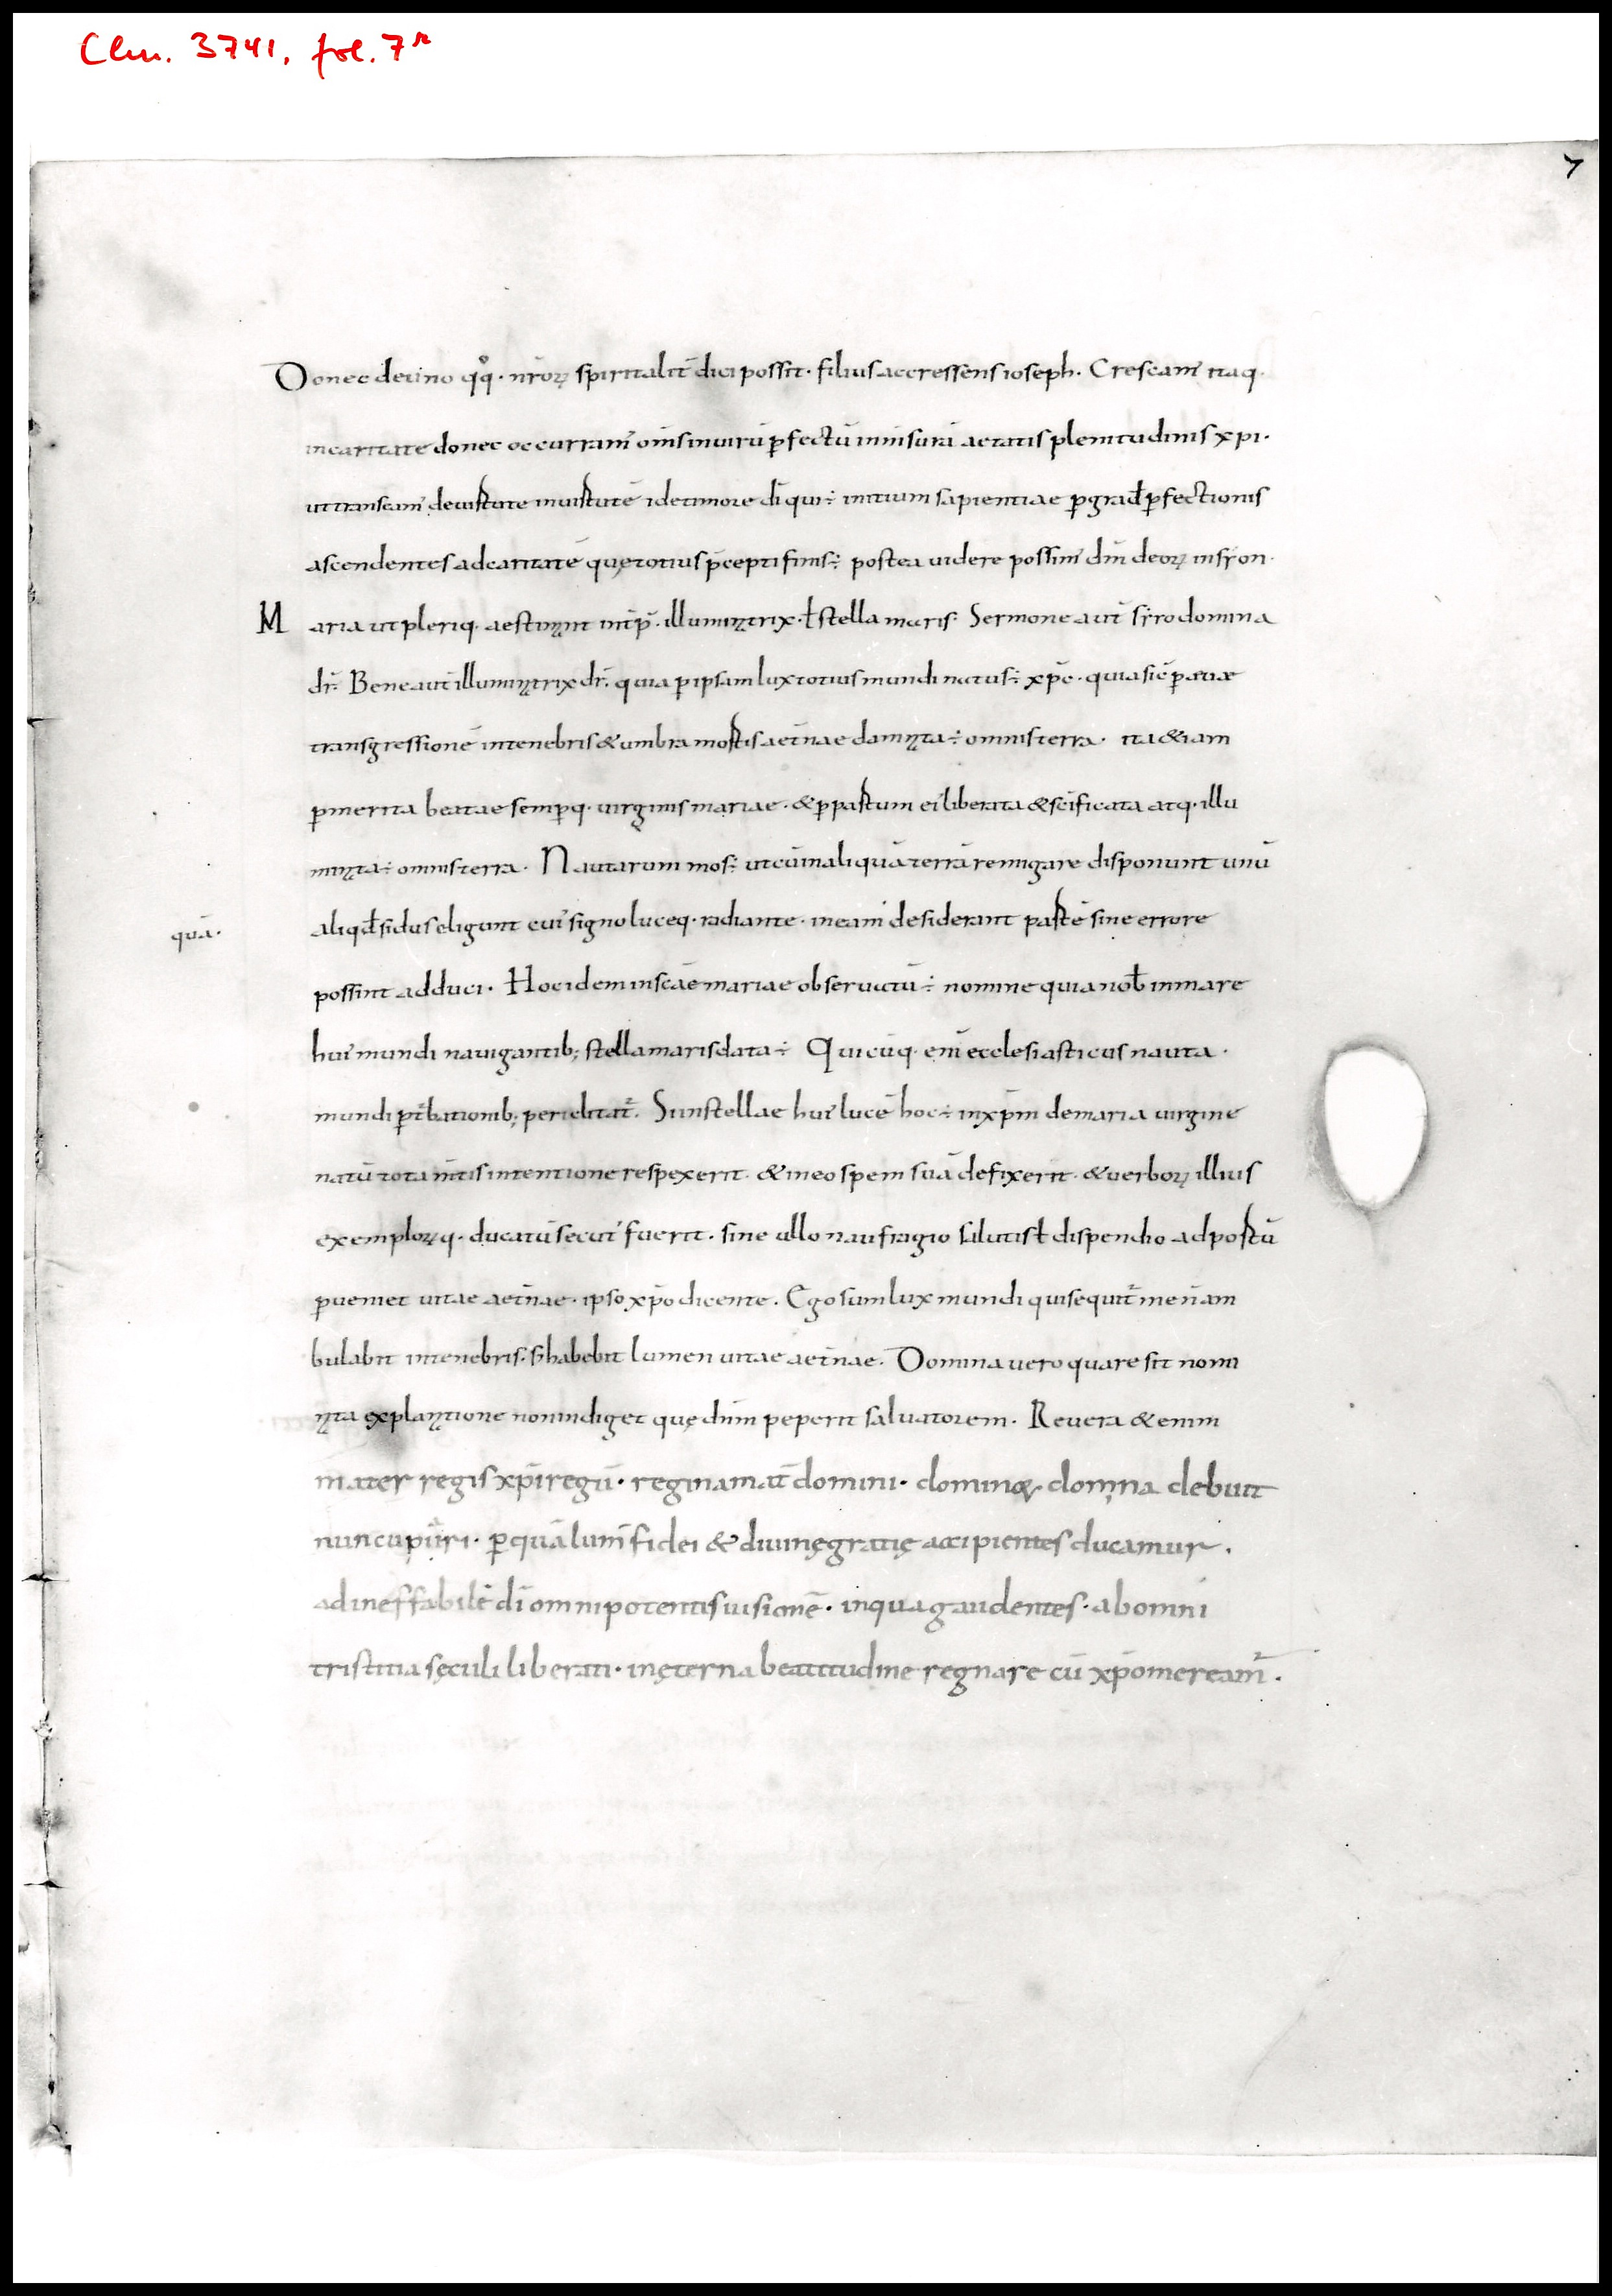 Clm. 3741, fol. 7r
7
Donec de uno qͦq· nr̄oꝝ spiritalit̄ dici possit· filius accressens ioseph. Crescam̄ itaq·
in caritate donec occurram̄ om̄s in uirū ꝑfectū in m̄surā aetatis plenitudinis xp̄i·
ut transeam̄ de uirtute in uirtutē id e timore dī qui ÷ initium sapientiae ꝑ grad̄ ꝑfectionis
ascendentes ad caritatē quę totius p̄cepti finis ÷ postea uidere possim̄ dm̄ deoꝝ in syon·
Maria ut pleriq· aestimant int̄p̄· illuminatrix· ł stella maris· Sermone aut̄ syro domina
dr̄· Bene aut̄ illuminatrix dr̄· quia ꝑ ipsam lux totius mundi natus ÷ xp̄c· quia sic ꝑ aeuae
transgressionē in tenebris & umbra mortis aet̄nae damnata ÷ omnis terra· ita & iam
ꝑ merita beatae semꝑq· uirginis mariae· & ꝑ partum ei' liberata & sc̄ificata atq· illu
minata ÷ omnis terra· Nautarum mos ÷ ut cū in aliquā terrā remigare disponunt unū
quā·
aliqd̄ sidus eligunt cui' signo luceq· radiante· in eam desiderant partē sine errore
possint adduci· Hoc idem in sc̄ae mariae obseruatū ÷ nomine quia nob̄ in mare
hui' mundi nauigantib; stella maris data ÷ Quicūq· eni' ecclesiasticus nauta·
mundi ꝑt̄bationib; periclitat̄· Si in stellae hui' lucē hoc ÷ in xp̄m de maria uirgine
natū tota m̄tis intentione respexerit· & in eo spem suā defixerit· & uerboꝝ illius
exemploꝝq· ducatū secut' fuerit· sine ullo naufragio salutis ł dispendio ad portū
ꝑueniet uitae aet̄nae· ipso xp̄o dicente· Ego sum lux mundi qui sequit̄ me n̄ am
bulabit in tenebris· s; habebit lumen uitae aet̄nae· Domina uero quare sit nomi
nata explanatione non indiget quę dn̄m peperit saluatorem· Reuera & enim
mater regis xp̄i regū· regina mat̄ domini· dominoꝝ domina debuit
nuncupari· ꝑ quā lum̄ fidei & diuinę gratię accipientes ducamur·
ad ineffabilē dī omnipotentis uisionē· in qua gaudentes· ab omni
tristitia sęculi liberati· in ęterna beatitudine regnare cū xp̄o mereamr̄·